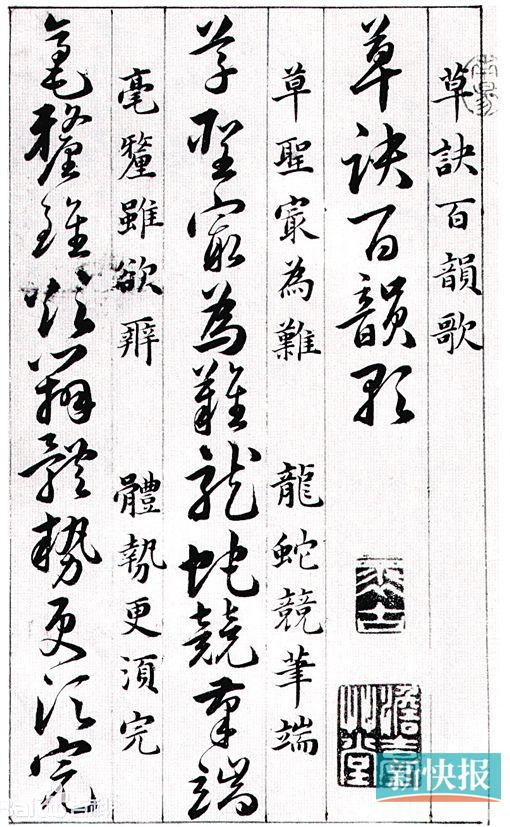 草訣百韻歌
草訣百韻歌
草聖㝡為難 龍蛇競筆端
草聖㝡為難龍蛇競筆端
毫釐雖欲辨 體勢更須完
毫釐雖欲辨體勢更須完
新快报